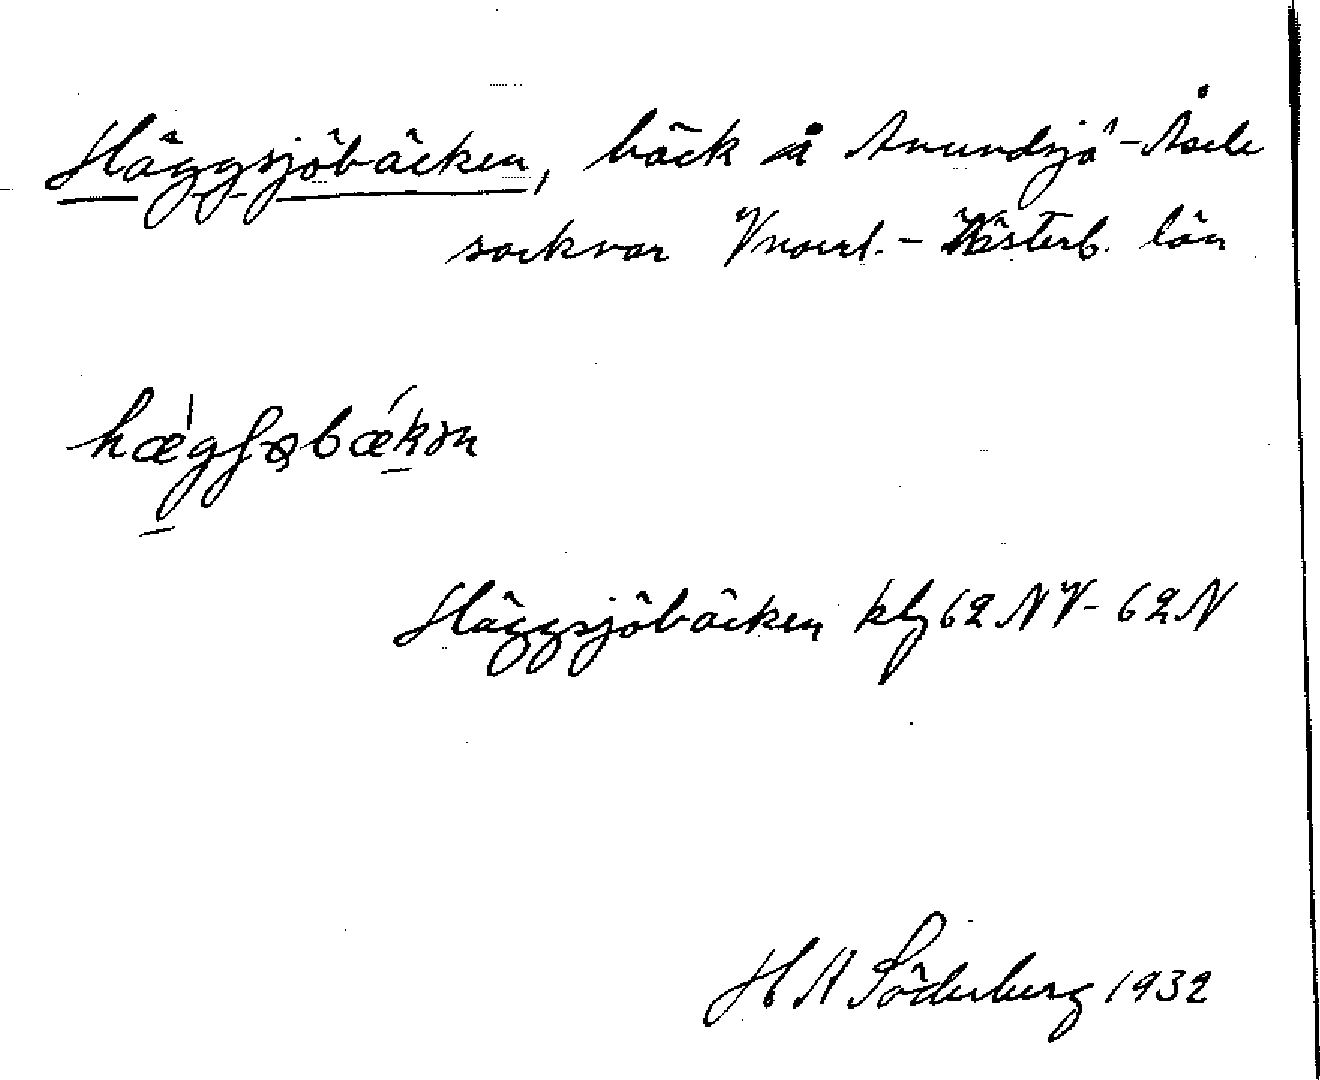 Häggsjöbäcken, bäck å Anundsjö-Åsele
socknar Vnorrl.-Västerb. län
hæ̀gʃøbækən
Häggsjöbäcken klg 62 NV-62 N
H A Söderberg 1932